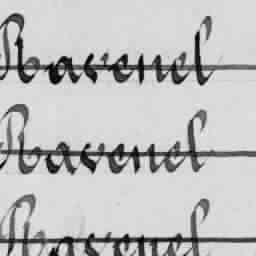 Ravenel
Ravenel
Ravenel